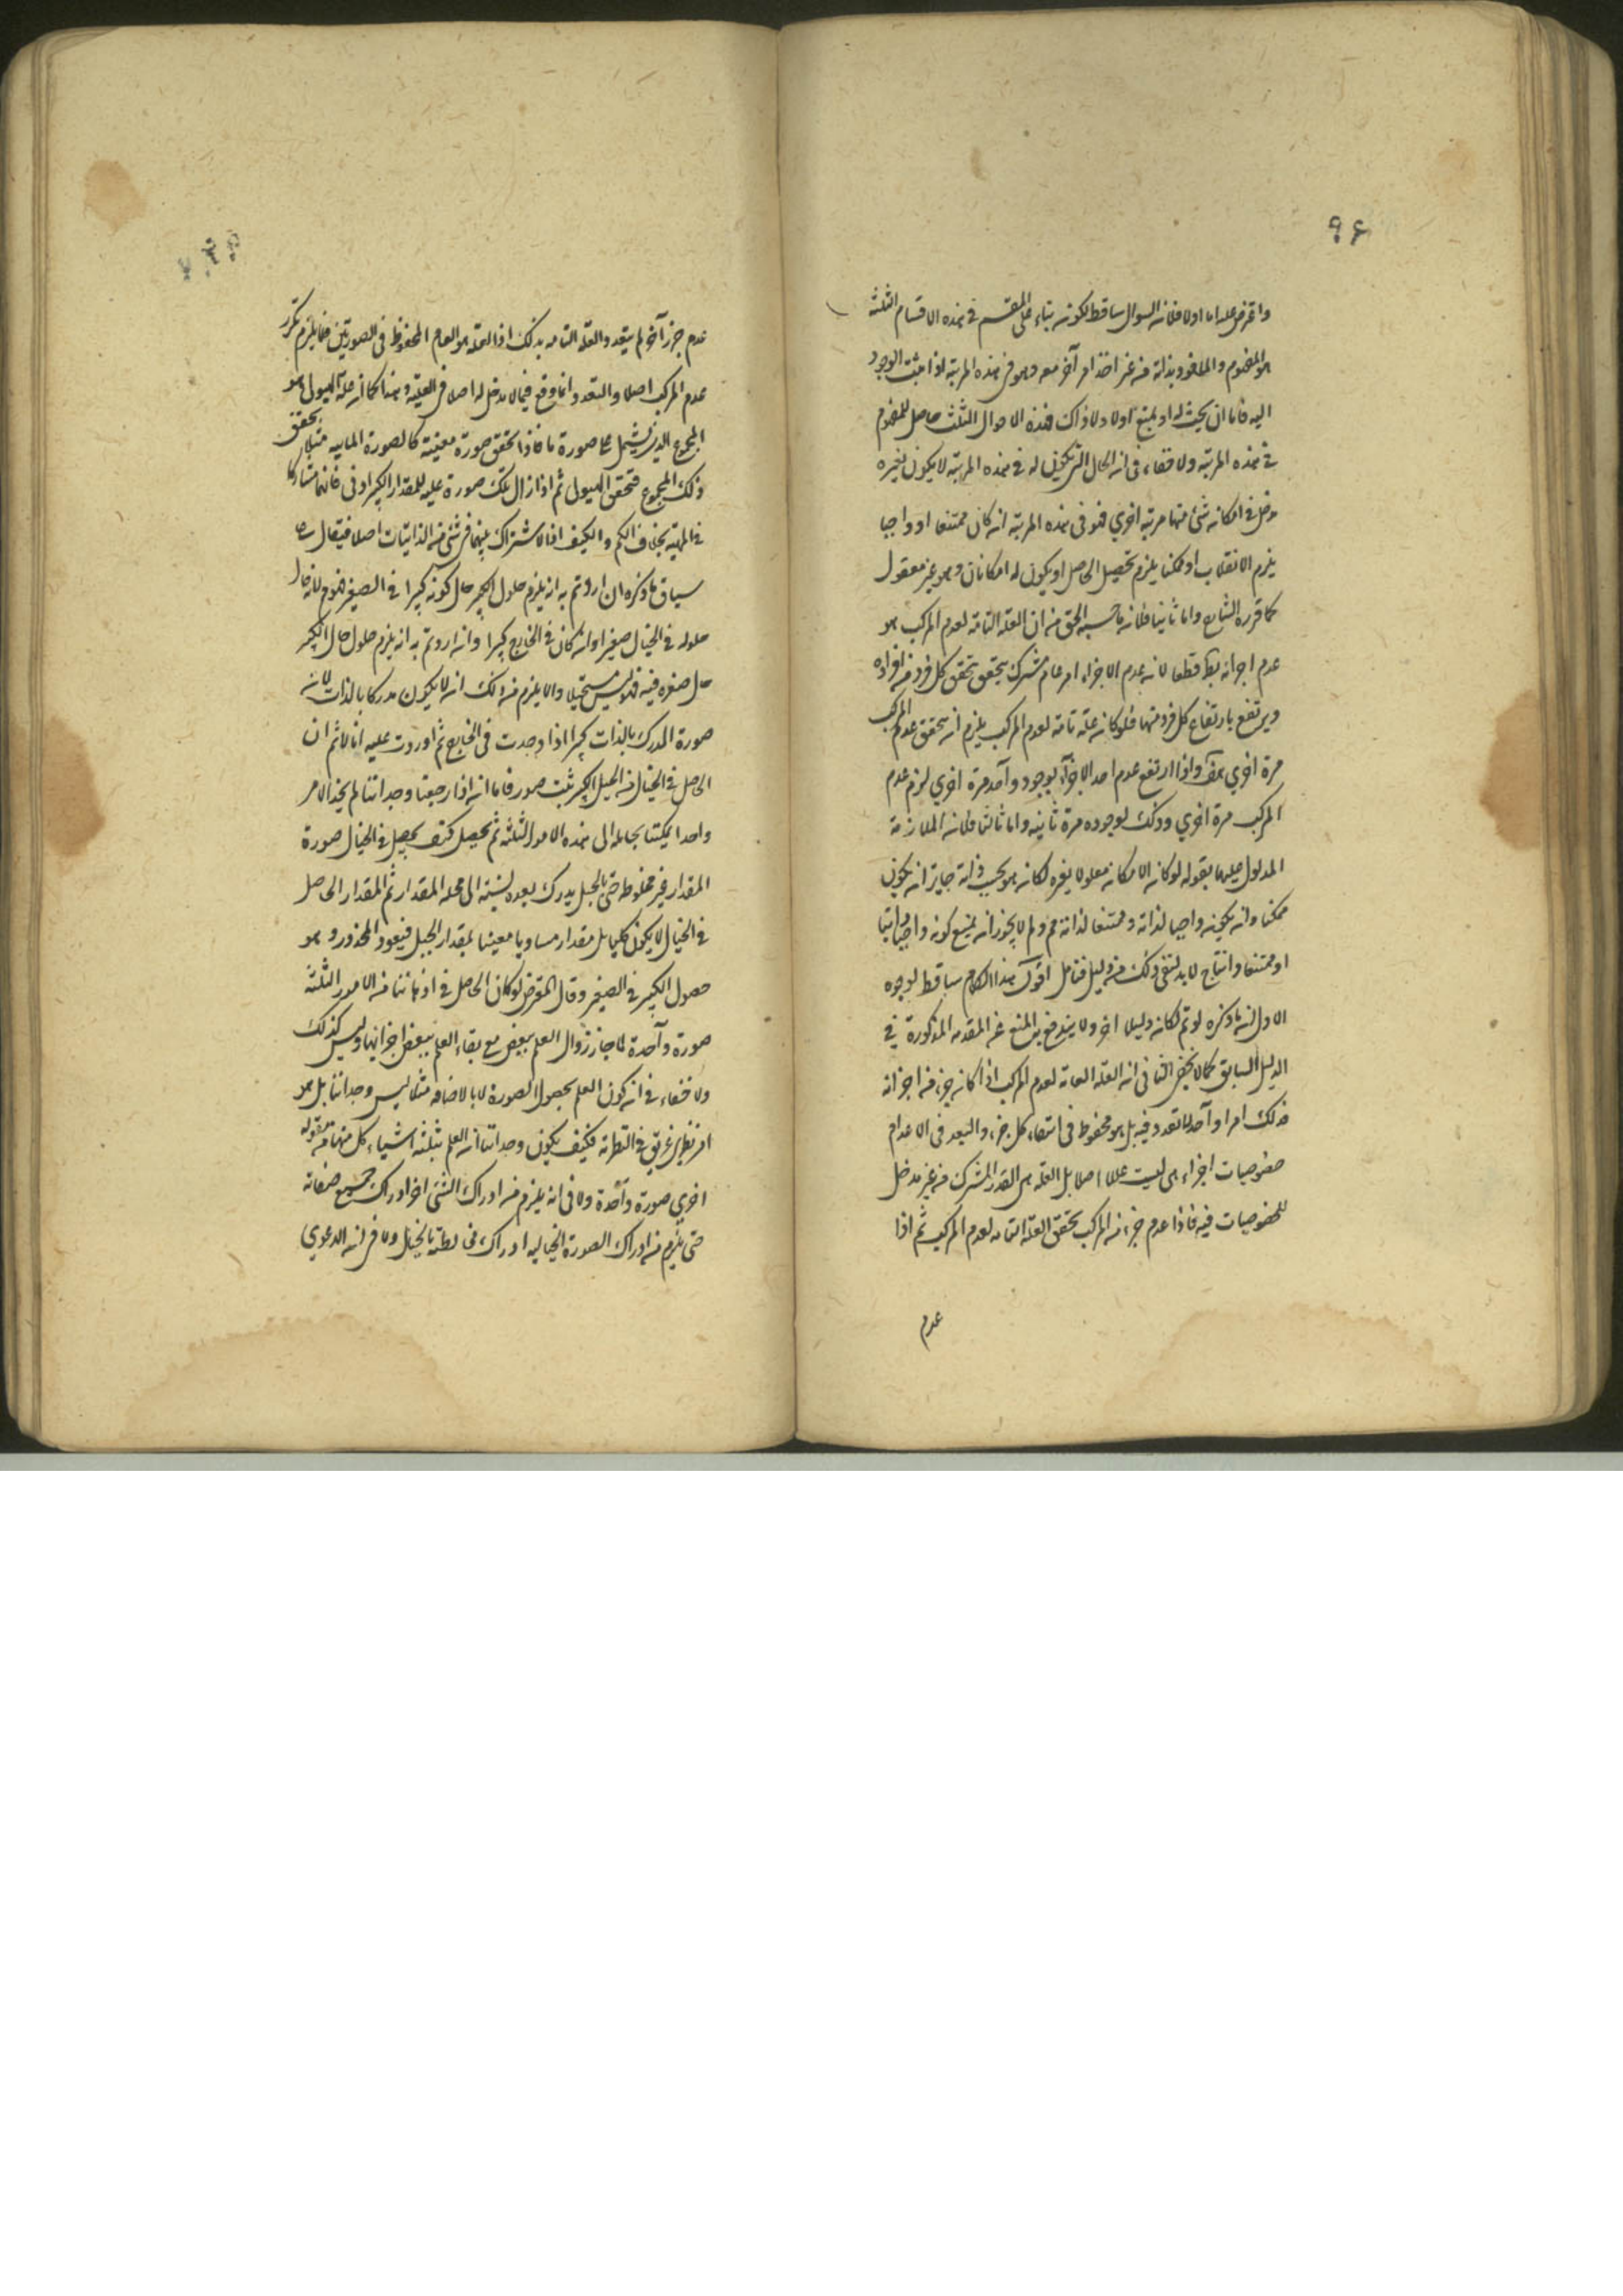 ٩٤
واعترض عليه اما اولا فلانه السوال ساقط لكونه بناء على المقسم في هذه الاقسام الثلثة
هو المفهوم والملحوظ بذاته من غير اخذ امر آخر معه وهو في هذه المرتبة اذا نسب الوجود
اليه فاما ان يجب له او يمتنع اولا ولا ذاك فهذه الاحوال الثلث حاصل للمفهوم
في هذه المرتبة ولا خفاء في انه الحال التي يكون له في هذه المرتبة لا يكون لغيره
دخل في امكانه شئ منها مرتبة اخري فهو في هذه المرتبة انه كان ممتنعا او واجبا
يلزم الانقلاب او ممكنا يلزم تحصيل الحاصل او يكون له امكانان وهو غير معقول
كما قرره الشارح واما ثانيا فلانه ما حسبه الحق من ان العلة التامة لعدم المركب هو
عدم اجزائه بط قطعا لانه عدم الاجزاء امر عام مشترك يتحقق بتحقق كل فرد من افراده
ويرتفع بارتفاع كل فرد منها فلو كانه علة تامة لعدم المركب يلزم انه يتحقق عدم المركب
مرة اخري هف واذا ارتفع عدم احد الاجزاء بوجود واحد مرة اخري لزم عدم
المركب مرة اخري وذلك لوجوده مرة ثانيه واما ثالثا فلانه الملازمة
المدلول عليها بقوله لو كانه الامكانه معلولا لغيره لكانه هو بحسب ذاته جايزا انه يكون
ممكنا وانه يكونه واجبا لذاته وممتنعا لذاته مم ولم لا يجوز انه يمتنع كونه واجبا ذاتيا
او ممتنعا وانتاج لا بد لنفي ذلك من دليل فتامل اقول هذا الكلام ساقط لوجوه
الاول انه ما ذكره لو تم لكانه دليلا اخر ولا يندفع به المنع عن المقدمه المذكورة في
الدليل السابق كما لا يخفى الثاني انه العلة التامة لعدم المركب اذا كانه جزء من اجزائه
فذلك امر واحد لا تعدد فيه بل هو محفوظ في انتفاء كل جزء والتعدد في الاعدام
خصوصيات اجزاء هي ليست عللا اصلا بل العلة هي القدر المشترك من غير مدخل
للخصوصيات فيه فاذا عدم جزء من المركب تحقق العلة التامه لعدم المركب ثم اذا
عدم
عدم جزء آخر لم يتعدد العلة التامه بذلك اذ العلة هو العام المحفوظ في الصورتين فما يلزم تكرر
عدم المركب اصلا والتعدد انما وقع فيما لا مدخل له اصلا في العلية وهذا كما انه علة الهيولى هو
المجموع الذي يشتمل على صورة ما فاذا تحقق صورة معينة كالصورة المايية مثلا تحقق
ذلك المجموع فتحقق الهيولى ثم اذا زال تلك صورة عليه للمقدار الكبير اذ في فانهما متشاركا
في المهية بخلاف الكم والكيف اذ لا اشتراك بينهما في شئ من الذاتيات اصلا فيقال على
سياق ما ذكره ان اردتم به انه يلزم حلول الكبير حال كونه كبيرا في الصغير ممنوع لانه حال
حلوله في الخيال صغير او انه كان في الخارج كبيرا وانه اردتم به انه يلزم حلول حال الكبير
حال صغره فيه فذلك ليس مستحيلا والا يلزم من ذلك انه لا يكون مدركا بالذات لانه
صورة المدرك بالذات كبيرا اذا وجدت في الخارج ثم اوردت عليه انا لا ثم ان
الحاصل في الخيال من الجبل الكبير ثبت صور فاما انه اذا رجعنا وجداننا لم يجد الامر
واحدا يمكننا بحاله الى هذه الامور الثلثه ثم يحصل كيف يحصل في الخيال صورة
المقدار غير مخلوطه حتى بالجبل يدرك بعده لنسبته الى محله المقدار ثم المقدار الحاصل
في الخيال لا يكون كليا بل مقدار مساويا معينا بمقدار الجبل فيعود المحذور وهو
حصول الكبير في الصغير وقال المعترض لو كان الحاصل في اذهاننا من الامور الثلثة
صورة واحدة لما جاز زوال العلم ببعض مع بقاء العلم ببعض اجزائها وليس كذلك
ولا خفاء في انه كون العلم بحصول الصورة لا بالاضافه مثلا ليس وجداننا بل هو
امر نظري غريق في النظرية فكيف يكون وجداننا انه العلم بثلثه اشياء كل منها من مقوله
اخري صورة واحدة ولا في انه يلزم من ادراك الشئ اخر ادراك جميع صفاته
حتى يلزم من ادراك الصورة الخياليه ادراك مخالطته بالخيال ولا في انه الدعوي